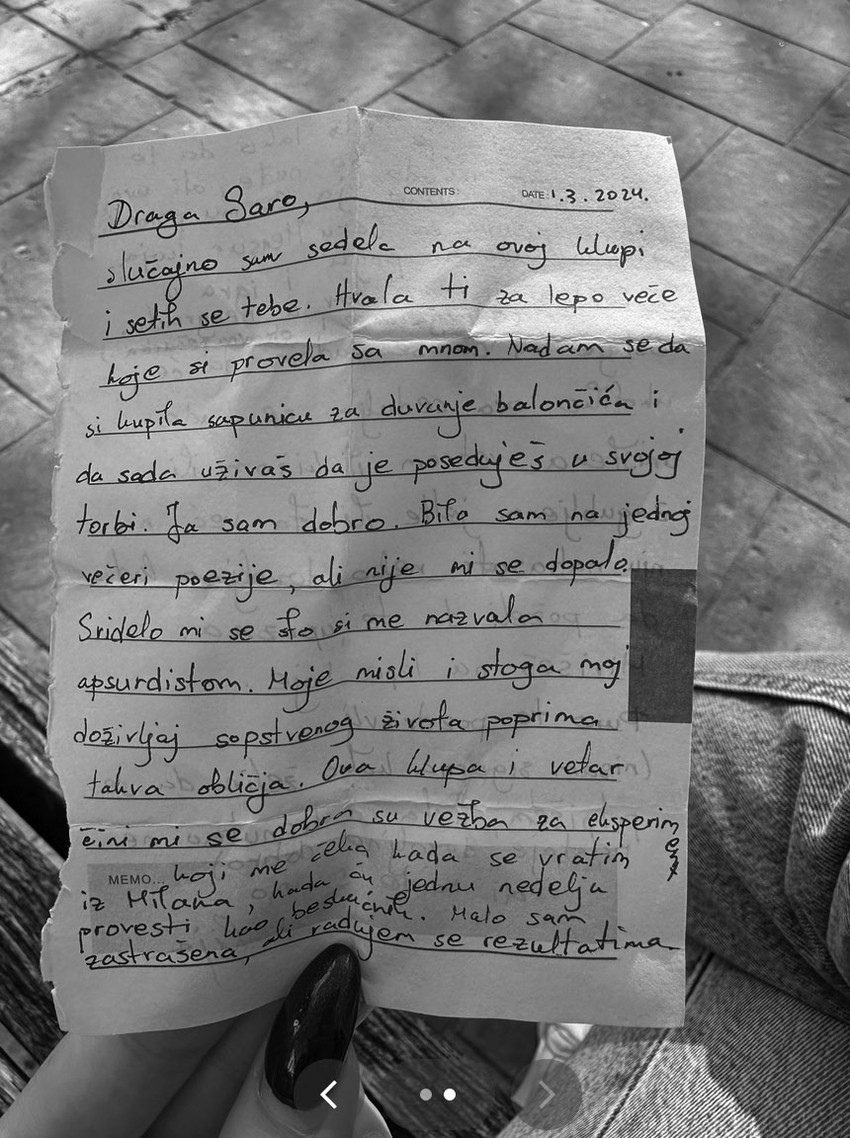 CONTENTS DATE: 1.3.2024.
Draga Saro,
slučajno sam sedela na ovoj klupi
i setih se tebe. Hvala ti za lepo veče
koje si provela sa mnom. Nadam se da
si kupila sapunicu za duvanje balončića i
da sada uživaš da je poseduješ u svojoj
torbi. Ja sam dobro. Bila sam na jednoj
večeri poezije, ali nije mi se dopalo.
Svidelo mi se što si me nazvala
apsurdistom. Moje misli i stoga moj
doživljaj sopstvenog života poprima
takva obličja. Ova klupa i vetar
čini mi se dobra su vežba za eksperiment
MEMO... koji me čeka kada se vratim
iz Milana, kada ću jednu nedelju
provesti kao beskućnik. Malo sam
zastrašena, ali radujem se rezultatima.